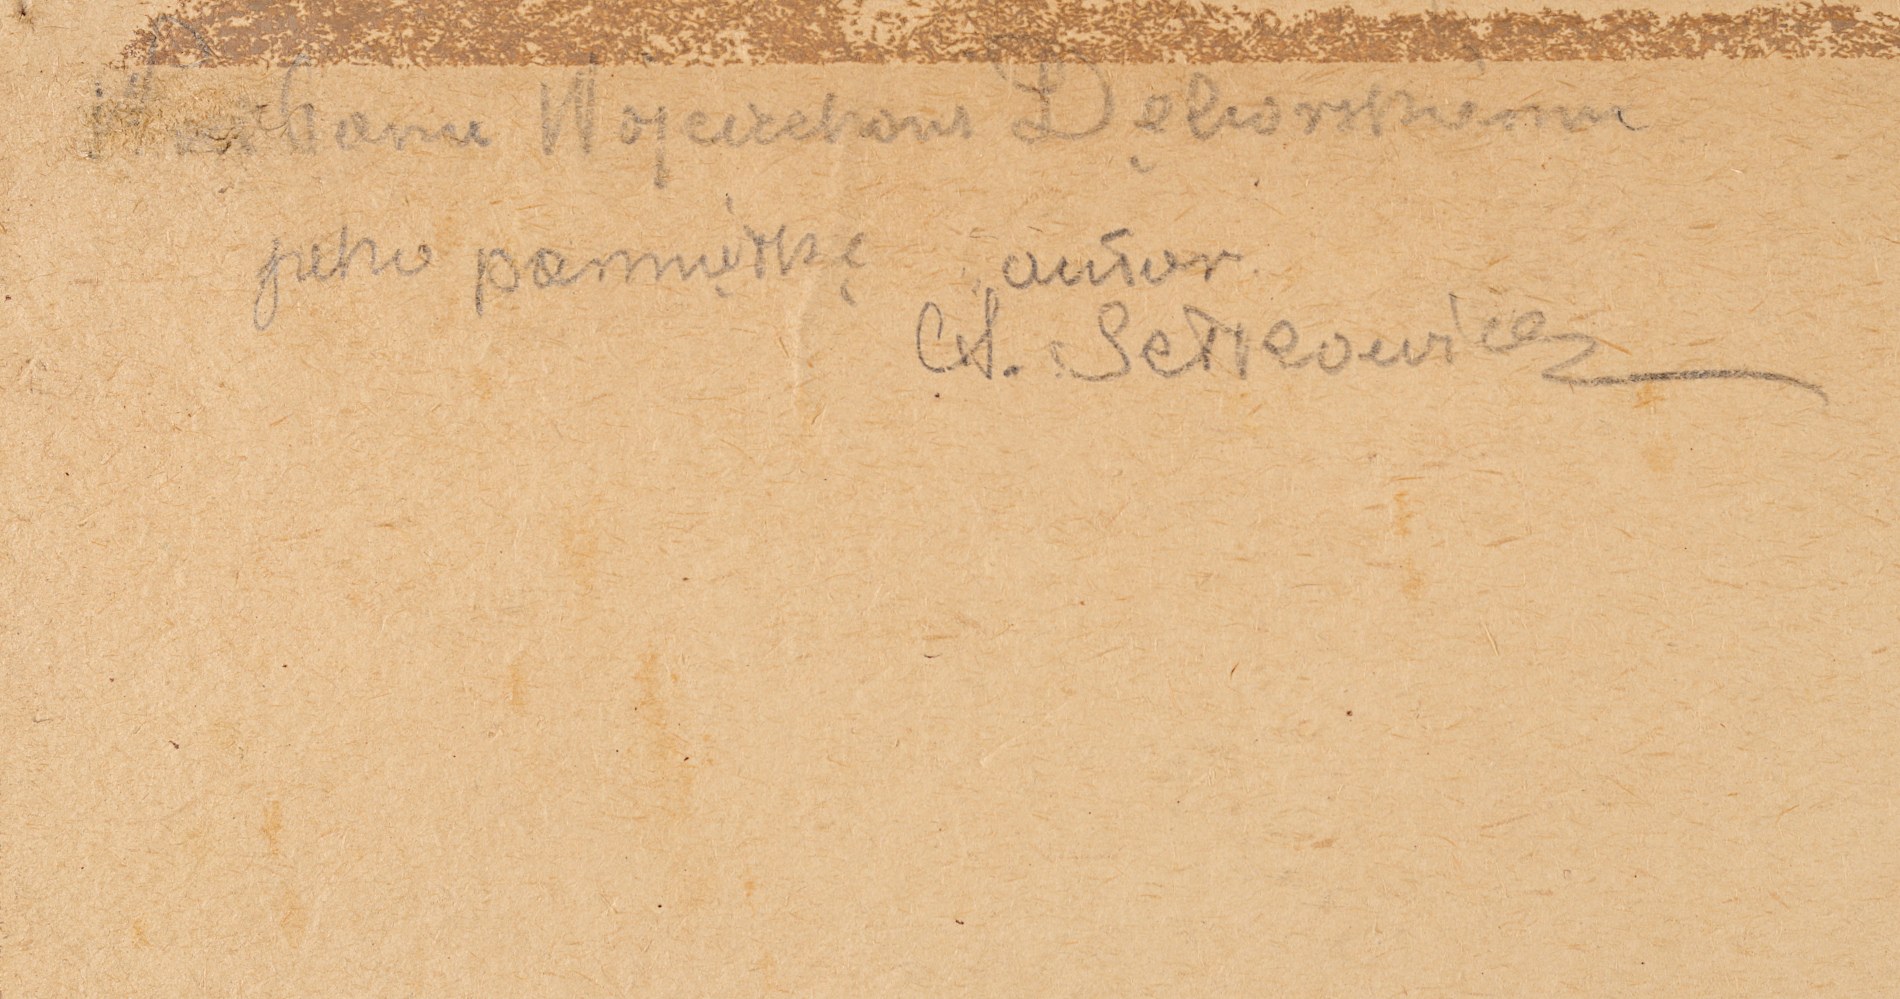 Panu Wojciechowi Dęborskiemu
jako pamiątkę autor
A. Setkowicz